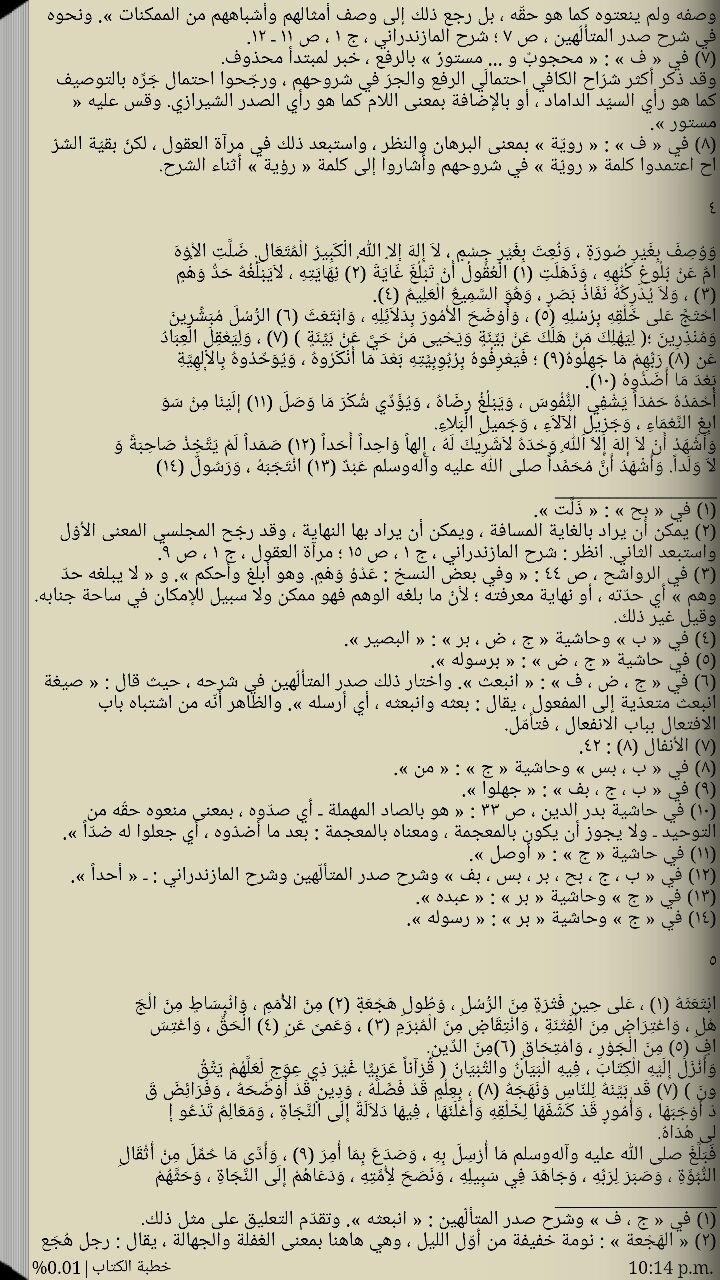 وصفه ولم ينعتوه كما هو حقّه ، بل رجع ذلك إلى وصف أمثالهم وأشباههم من الممكنات ». ونحوه
في شرح صدر المتألّهين ، ص ٧ ؛ شرح المازندراني ، ج ١ ، ص ١١ ـ ١٢.
(٧) في « ف » : « محجوبٌ و ... مستورٌ » بالرفع ، خبر لمبتدأ محذوف.
وقد ذكر أكثر شرّاح الكافي احتمالَي الرفع والجرّ في شروحهم ، ورجّحوا احتمال جَرِّه بالتوصيف
كما هو رأي السيّد الداماد ، أو بالإضافة بمعنى اللام كما هو رأي الصدر الشيرازي. وقس عليه «
مستور ».
(٨) في « ف » : « رويّة » بمعنى البرهان والنظر ، واستبعد ذلك في مرآة العقول ، لكنّ بقيّة الشرّ
اح اعتمدوا كلمة « رويّة » في شروحهم وأشاروا إلى كلمة « رؤية » أثناء الشرح.
٤
وَوُصِفَ بِغَيْرِ صُورَةٍ ، وَنُعِتَ بِغَيْرِ جِسْمٍ ، لاَ إِلهَ إِلاَّ اللهُ الْكَبِيرُ الْمُتَعَالِ. ضَلَّتِ الأَوْهَ
امُ عَنْ بُلُوغِ كُنْهِهِ ، وَذَهَلَتِ (١) الْعُقُولُ أَنْ تَبْلُغَ غَايَةَ (٢) نِهَايَتِهِ ، لَايَبْلُغُهُ حَدُّ وَهْمٍ
(٣) ، وَلَا يُدْرِكُهُ نَفَاذُ بَصَرٍ ، وَهُوَ السَّمِيعُ الْعَلِيمُ (٤).
احْتَجَّ عَلى خَلْقِهِ بِرُسُلِهِ (٥) ، وَأَوْضَحَ الأُمُورَ بِدَلَائِلِهِ ، وَابْتَعَثَ (٦) الرُّسُلَ مُبَشِّرِينَ
وَمُنْذِرِينَ ؛( لِيَهْلِكَ مَنْ هَلَكَ عَنْ بَيِّنَةٍ وَيَحْيى مَنْ حَيَّ عَنْ بَيِّنَةٍ ) (٧) ، وَلِيَعْقِلَ الْعِبَادُ
عَن (٨) رَبِّهِمْ مَا جَهِلُوهُ(٩) ؛ فَيَعْرِفُوهُ بِرُبُوبِيَّتِهِ بَعْدَ مَا أَنْكَرُوهُ ، وَيُوَحِّدُوهُ بِالإِلهِيَّةِ
بَعْدَ مَا أَضَدُّوهُ (١٠).
أَحْمَدُهُ حَمْداً يَشْفِي النُّفُوسَ ، وَيَبْلُغُ رِضَاهُ ، وَيُؤَدِّي شُكْرَ مَا وَصَلَ (١١) إِلَيْنَا مِنْ سَوَ
ابِغِ النَّعْمَاءِ ، وَجَزِيلِ الآلَاءِ ، وَجَمِيلِ الْبَلَاءِ.
وَأَشْهَدُ أَنْ لَا إِلهَ إِلاَّ اللهُ وَحْدَهُ لَاشَرِيكَ لَهُ ، إِلهاً وَاحِداً أَحَداً (١٢) صَمَداً لَمْ يَتَّخِذْ صَاحِبَةً وَ
لَا وَلَداً. وَأَشْهَدُ أَنَّ مُحَمَّداً صلى الله عليه وآله‌وسلم عَبْدٌ (١٣) انْتَجَبَهُ ، وَرَسُولٌ (١٤)
(١) في « بح » : « ذَلَّت ».
(٢) يمكن أن يراد بالغاية المسافة ، ويمكن أن يراد بها النهاية ، وقد رجّح المجلسي المعنى الأوّل
واستبعد الثاني. انظر : شرح المازندراني ، ج ١ ، ص ١٥ ؛ مرآة العقول ، ج ١ ، ص ٩.
(٣) في الرواشح ، ص ٤٤ : « وفي بعض النسخ : عَدْوُ وَهْمٍ. وهو أبلغ وأحكم ». و « لا يبلغه حدّ
وهم » أي حدّته ، أو نهاية معرفته ؛ لأنّ ما بلغه الوهم فهو ممكن ولا سبيل للإمكان في ساحة جنابه.
وقيل غير ذلك.
(٤) في « ب » وحاشية « ج ، ض ، بر » : « البصير ».
(٥) في حاشية « ج ، ض » : « برسوله ».
(٦) في « ج ، ض ، ف » : « انبعث ». واختار ذلك صدر المتألّهين في شرحه ، حيث قال : « صيغة
انبعث متعدّية إلى المفعول ، يقال : بعثه وانبعثه ، أي أرسله ». والظاهر أنّه من اشتباه باب
الافتعال بباب الانفعال ، فتأمّل.
(٧) الأنفال (٨) : ٤٢.
(٨) في « ب ، بس » وحاشية « ج » : « من ».
(٩) في « ب ، ج ، بف » : « جهلوا ».
(١٠) في حاشية بدر الدين ، ص ٣٣ : « هو بالصاد المهملة ـ أي صدّوه ، بمعنى منعوه حقّه من
التوحيد ـ ولا يجوز أن يكون بالمعجمة ، ومعناه بالمعجمة : بعد ما أضدّوه ، أي جعلوا له ضدّاً ».
(١١) في حاشية « ج » : « أوصل ».
(١٢) في « ب ، ج ، بح ، بر ، بس ، بف » وشرح صدر المتألّهين وشرح المازندراني : ـ « أحداً ».
(١٣) في « ج » وحاشية « بر » : « عبده ».
(١٤) في « ج » وحاشية « بر » : « رسوله ».
٥
ابْتَعَثَهُ (١) ، عَلى حِينِ فَتْرَةٍ مِنَ الرُّسُلِ ، وَطُولِ هَجْعَةٍ (٢) مِنَ الأُمَمِ ، وَانْبِسَاطٍ مِنَ الْجَ
هْلِ ، وَاعْتِرَاضٍ مِنَ الْفِتْنَةِ ، وَانْتِقَاضٍ مِنَ الْمُبْرَمِ (٣) ، وَعَمىً عَنِ (٤) الْحَقِّ ، وَاعْتِسَ
افٍ (٥) مِنَ الْجَوْرِ ، وَامْتِحَاقٍ (٦)مِنَ الدِّينِ.
وَأَنْزَلَ إِلَيْهِ الْكِتَابَ ، فِيهِ الْبَيَانُ والتِّبْيَانُ ( قُرْآناً عَرَبِيًّا غَيْرَ ذِي عِوَجٍ لَعَلَّهُمْ يَتَّقُ
ونَ ) (٧) قَد بَيَّنَهُ لِلنَّاسِ وَنَهَجَهُ (٨) ، بِعِلْمٍ قَدْ فَصَّلَهُ ، وَدِينٍ قَدْ أَوْضَحَهُ ، وَفَرَائِضَ قَ
دْ أَوْجَبَهَا ، وَأُمُورٍ قَدْ كَشَفَهَا لِخَلْقِهِ وَأَعْلَنَهَا ، فِيهَا دَلَالَةٌ إِلَى النَّجَاةِ ، وَمَعَالِمُ تَدْعُو إِ
لى هُدَاهُ.
فَبَلَّغَ صلى الله عليه وآله‌وسلم مَا أُرْسِلَ بِهِ ، وَصَدَعَ بِمَا أُمِرَ (٩) ، وَأَدّى مَا حُمِّلَ مِنْ أَثْقَالِ
النُّبُوَّةِ ، وَصَبَرَ لِرَبِّهِ ، وَجَاهَدَ فِي سَبِيلِهِ ، وَنَصَحَ لِأُمَّتِهِ ، وَدَعَاهُمْ إِلَى النَّجَاةِ ، وَحَثَّهُمْ
(١) في « ج ، ف » وشرح صدر المتألّهين : « انبعثه ». وتقدّم التعليق على مثل ذلك.
(٢) « الهَجْعة » : نومة خفيفة من أوّل الليل ، وهي هاهنا بمعنى الغفلة والجهالة ، يقال : رجل هُجَع
%0.01 | خطبة الكتاب
10:14 p.m.